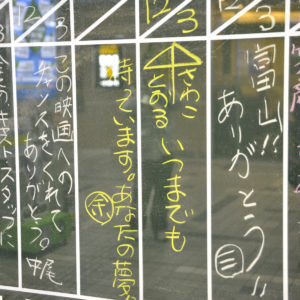 3
富山!!
ありがとう!!
12/3
さわこ
とおる
いつまでも
待っています。あなたの夢
余
12/3
この映画への
チャンスをくれて
ありがとう。中尾
12
キャスト・スタッフに